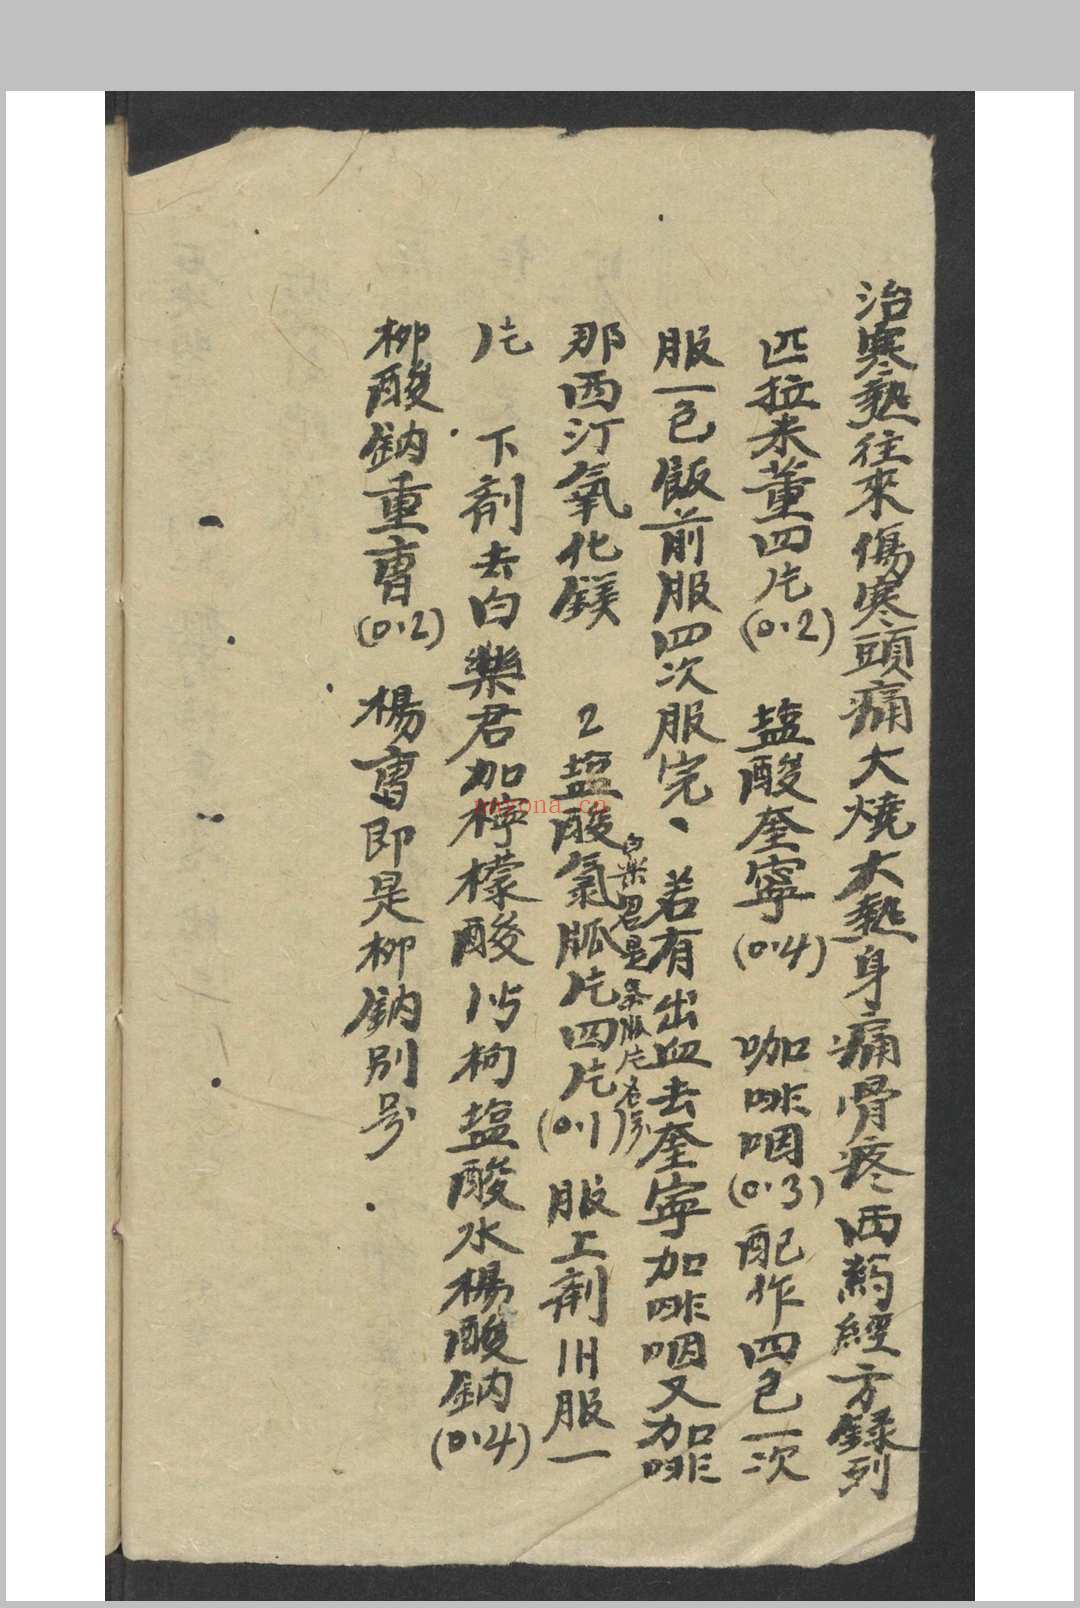 治寒熱往來傷寒頭痛大燒大熱身痛骨疼西葯經方錄列
匹拉米董四片(0.2) 盐酸奎寧(0.4) 咖啡咽(0.3)配作四包一次
服一包飯前服四次服完、若有出血去奎寧加啡咽又加啡
白柴君是氯胍片名号
那西汀氧化鎂 2盐酸氯胍片四片(0.1) 服上剤1H服一
片 下剤去白樂君加檸檬酸 枸盐酸水楊酸鈉(0.4)
柳酸鈉重曹(0.2) 楊曹即是柳鈉别号.
nayona.cn